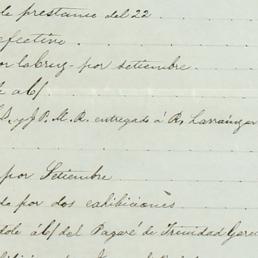 de prestamo del 22
efectivo.
or la Cruz - por setiembre.
á b/
y P. M. R. entregado á R, Larrainzar
por Setiembre
do por dos exhibiciones
dole á b/ del Pagaré de Trinidad Garc